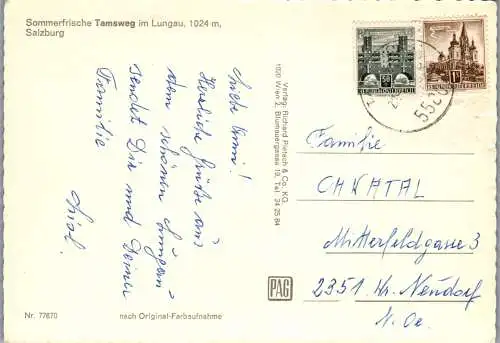 Sommerfrische Tamsweg im Lungau, 1024 m,
Salzburg
Herzliche Grüße aus
dem schönen Lungau
sendet Dir und Deiner
Familie
Nr. 77670
nach Original-Farbaufnahme
Verlag: Richard Pietsch & Co. KG.
1020 Wien 2, Blumauergasse 19, Tel. 24 25 84
PAG
Familie
CHWATAL
Mitterfeldgasse 3
2351 Wr. Neudorf
N. Oe.